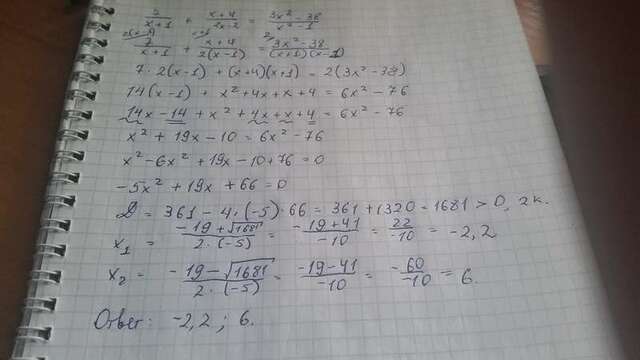 7/(x+1) + (x+4)/(2x-2) = (3x² - 38)/(x² - 1)
2(x-1) 7/(x+1) + x+1 (x+4)/(2(x-1)) = 2 (3x² - 38)/((x+1)(x-1))
7 · 2(x-1) + (x+4)(x+1) = 2(3x² - 38)
14(x-1) + x² + 4x + x + 4 = 6x² - 76
14x - 14 + x² + 4x + x + 4 = 6x² - 76
x² + 19x - 10 = 6x² - 76
x² - 6x² + 19x - 10 + 76 = 0
-5x² + 19x + 66 = 0
D = 361 - 4 · (-5) · 66 = 361 + 1320 = 1681 > 0, 2 к.
x₁ = (-19 + √1681)/(2 · (-5)) = (-19 + 41)/(-10) = 22/(-10) = -2,2
x₂ = (-19 - √1681)/(2 · (-5)) = (-19 - 41)/(-10) = (-60)/(-10) = 6.
Ответ: -2,2 ; 6.